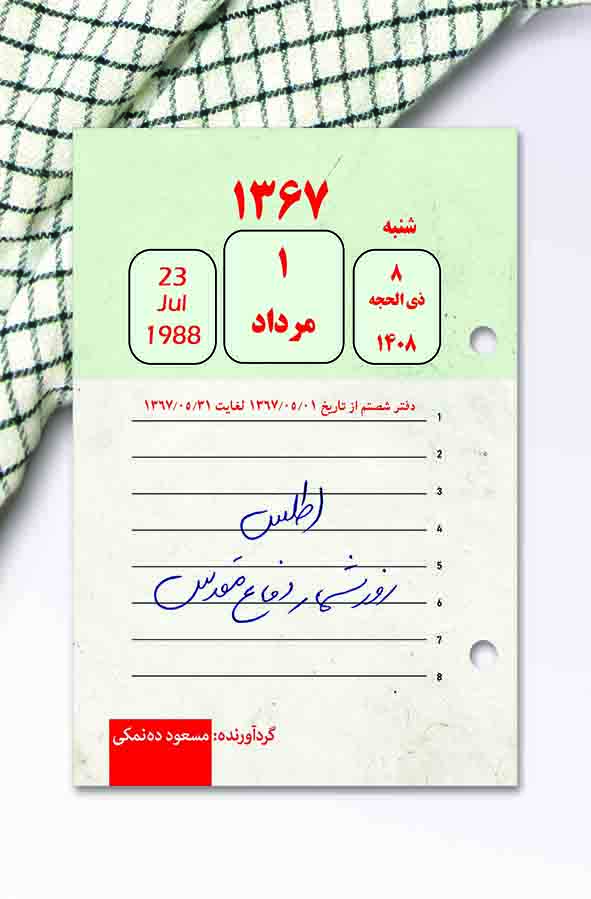 ۱۳۶۷
شنبه
۸
ذی الحجه
۱۴۰۸
۱
مرداد
23
Jul
1988
دفتر شصتم از تاریخ ۱۳۶۷/۰۵/۰۱ لغایت ۱۳۶۷/۰۵/۳۱
1
2
3
اطلس
4
5
روزشمار دفاع مقدس
6
7
8
گردآورنده: مسعود ده‌نمکی